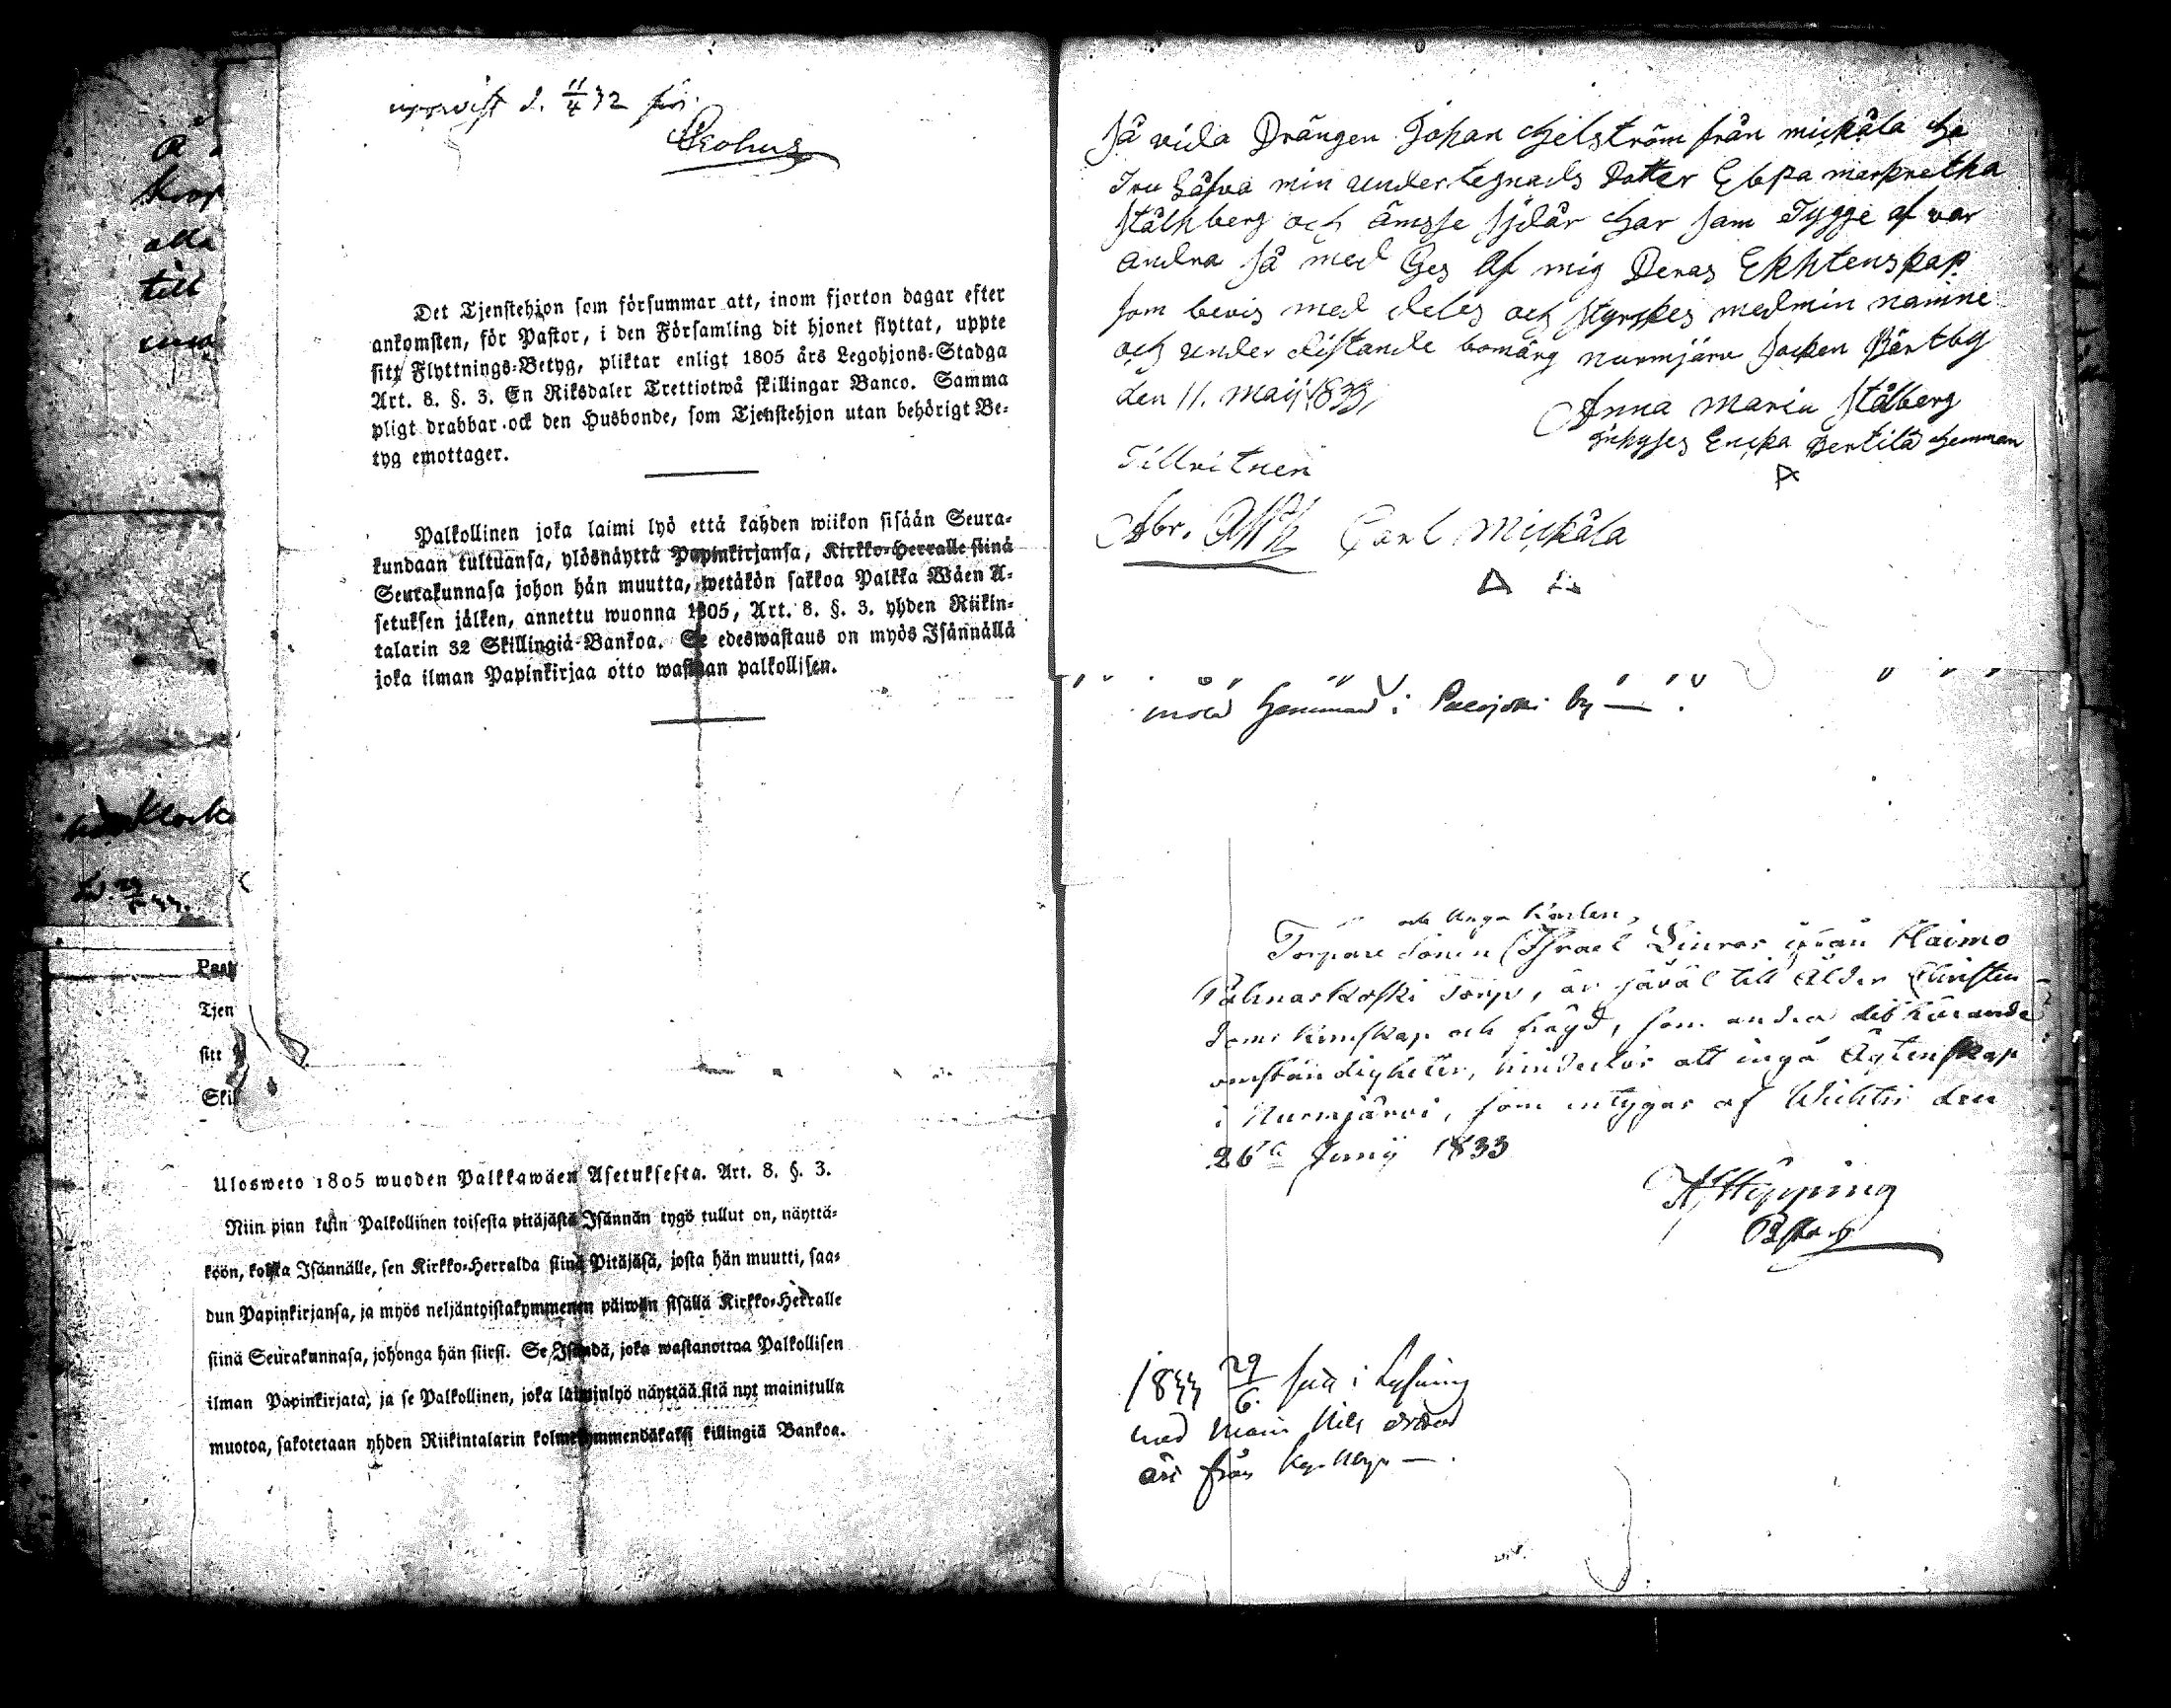 uppvist d. 11/4 32 för
Det Tjenstehjon som försummar att, inom fjorton dagar efter
ankomsten, för Pastor, i den Församling dit hjonet flyttat, uppte
sitt Flyttnings-Betyg, pliktar enligt 1805 års Legohjons-Stadga
Art. 8. §. 3. En Riksdaler Trettiotwå skillingar Banco. Samma
pligt drabbar ock den Husbonde, som Tjenstehjon utan behörigt Be-
tyg emottager.
Palkollinen joka laimi lyö että kahden wiikon sisään Seura-
kundaan tultuansa, ylösnäyttä Papinkirjansa, Kirkko-Herralle siinä
Seurakunnasa johon hän muutta, wetäkön sakkoa Palkka Wäen A-
setuksen jälken, annettu wuonna 1805, Art. 8. §. 3. yhden Riikin-
talarin 32 Skillingiä Bankoa. Se edeswastaus on myös Isännällä
joka ilman Papinkirjaa otto wastaan palkollisen.
alla
till
Klock
Past
Tjen
sitt
Ski
Ulosweto 1805 wuoden Palkkawäen Asetuksesta. Art. 8. §. 3.
Niin pian kuin Palkollinen toisesta pitäjästä Isännän tygö tullut on, näyttä-
köön, koska Isännälle, sen Kirkko-Herralda siinä Pitäjäsä, josta hän muutti, saa-
dun Papinkirjansa, ja myös neljäntoistakymmenen päiwän sisällä Kirkko-Herralle
siinä Seurakunnasa, johonga hän siirsi. Se Isändä, joka wastanottaa Palkollisen
ilman Papinkirjata, ja se Palkollinen, joka laiminlyö näyttää sitä nyt mainitulla
muotoa, sakotetaan yhden Riikintalarin kolmekymmendäkaksi killingiä Bankoa.
Så vida Drängen Johan Helström från mickåla ha
Tru Låfva min undertegnads Dotter Ebba markretha
Stålhberg och ömsse sjdår har sam Tygge af var
andra Så med Ges Af mig Deras Ekhtenskap
som bevis med deles och styrckes med min namne
och under distande bomärg nurmjärvi Socken Pertby
den 11. Maij 1833,
Anna Maria Stålberg
Ericka Pertilä hemman
Till vitnen
Abr. Carl Mickåla
hemman i Paloj by
och Unga Karlen,
Torpare Sonen Israel ifrån Haimo
Palnarkoski Torp, är såväl till Ålder Christen-
doms kunskap och frägd, som andra dithörande
omständigheter, hinderlös att ingå Ägtenskap
i Nurmijärvi, som intygas af Wichtis den
26te Junij 1833
A F Hipping
Pastor
1833 29/6. i Lysning
med
från